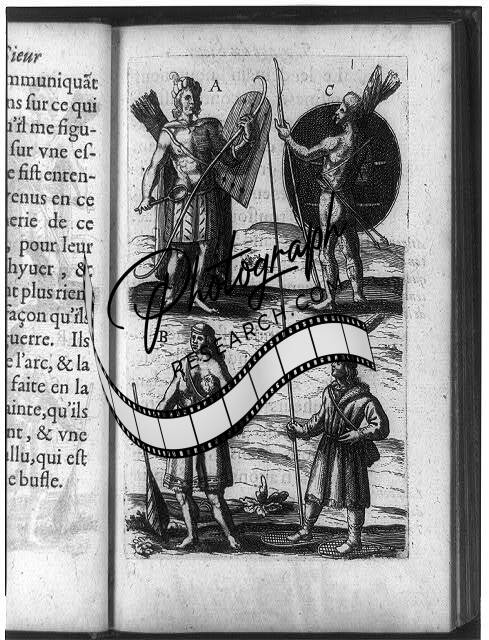 Sieur
mmuniquãt
ns ſur ce qui
u'il me figu-
ſur vne eſ-
e fiſt enten-
venus en ce
erie de ce
, pour leur
hyuer , &
nt plus rien
açon qu'ils
uerre. Ils
e l'arc, & la
faite en la
ainte, qu'ils
nt, & vne
llu, qui eſt
e bufle.
A
C
B
Photograph
RESEARCH.COM